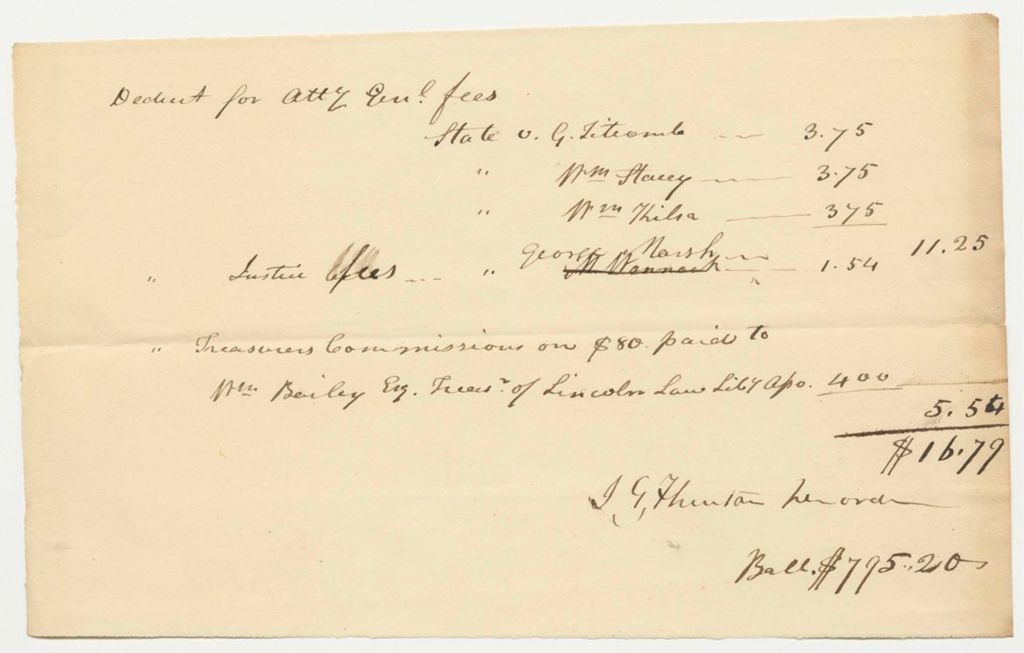 Deduct for Atty Genl. fees
State v. G. Titcomb — 3.75
" Wm Stacey — 3.75
" Wm — 375
11.25
" Justice fees — " George Marsh — 1.54
" Treasurers Commissions on $80 paid to
Wm Bailey Esq. Treasr. of Lincoln Law Liby Aso. 400
5.54
$16.79
Ball. $795.20